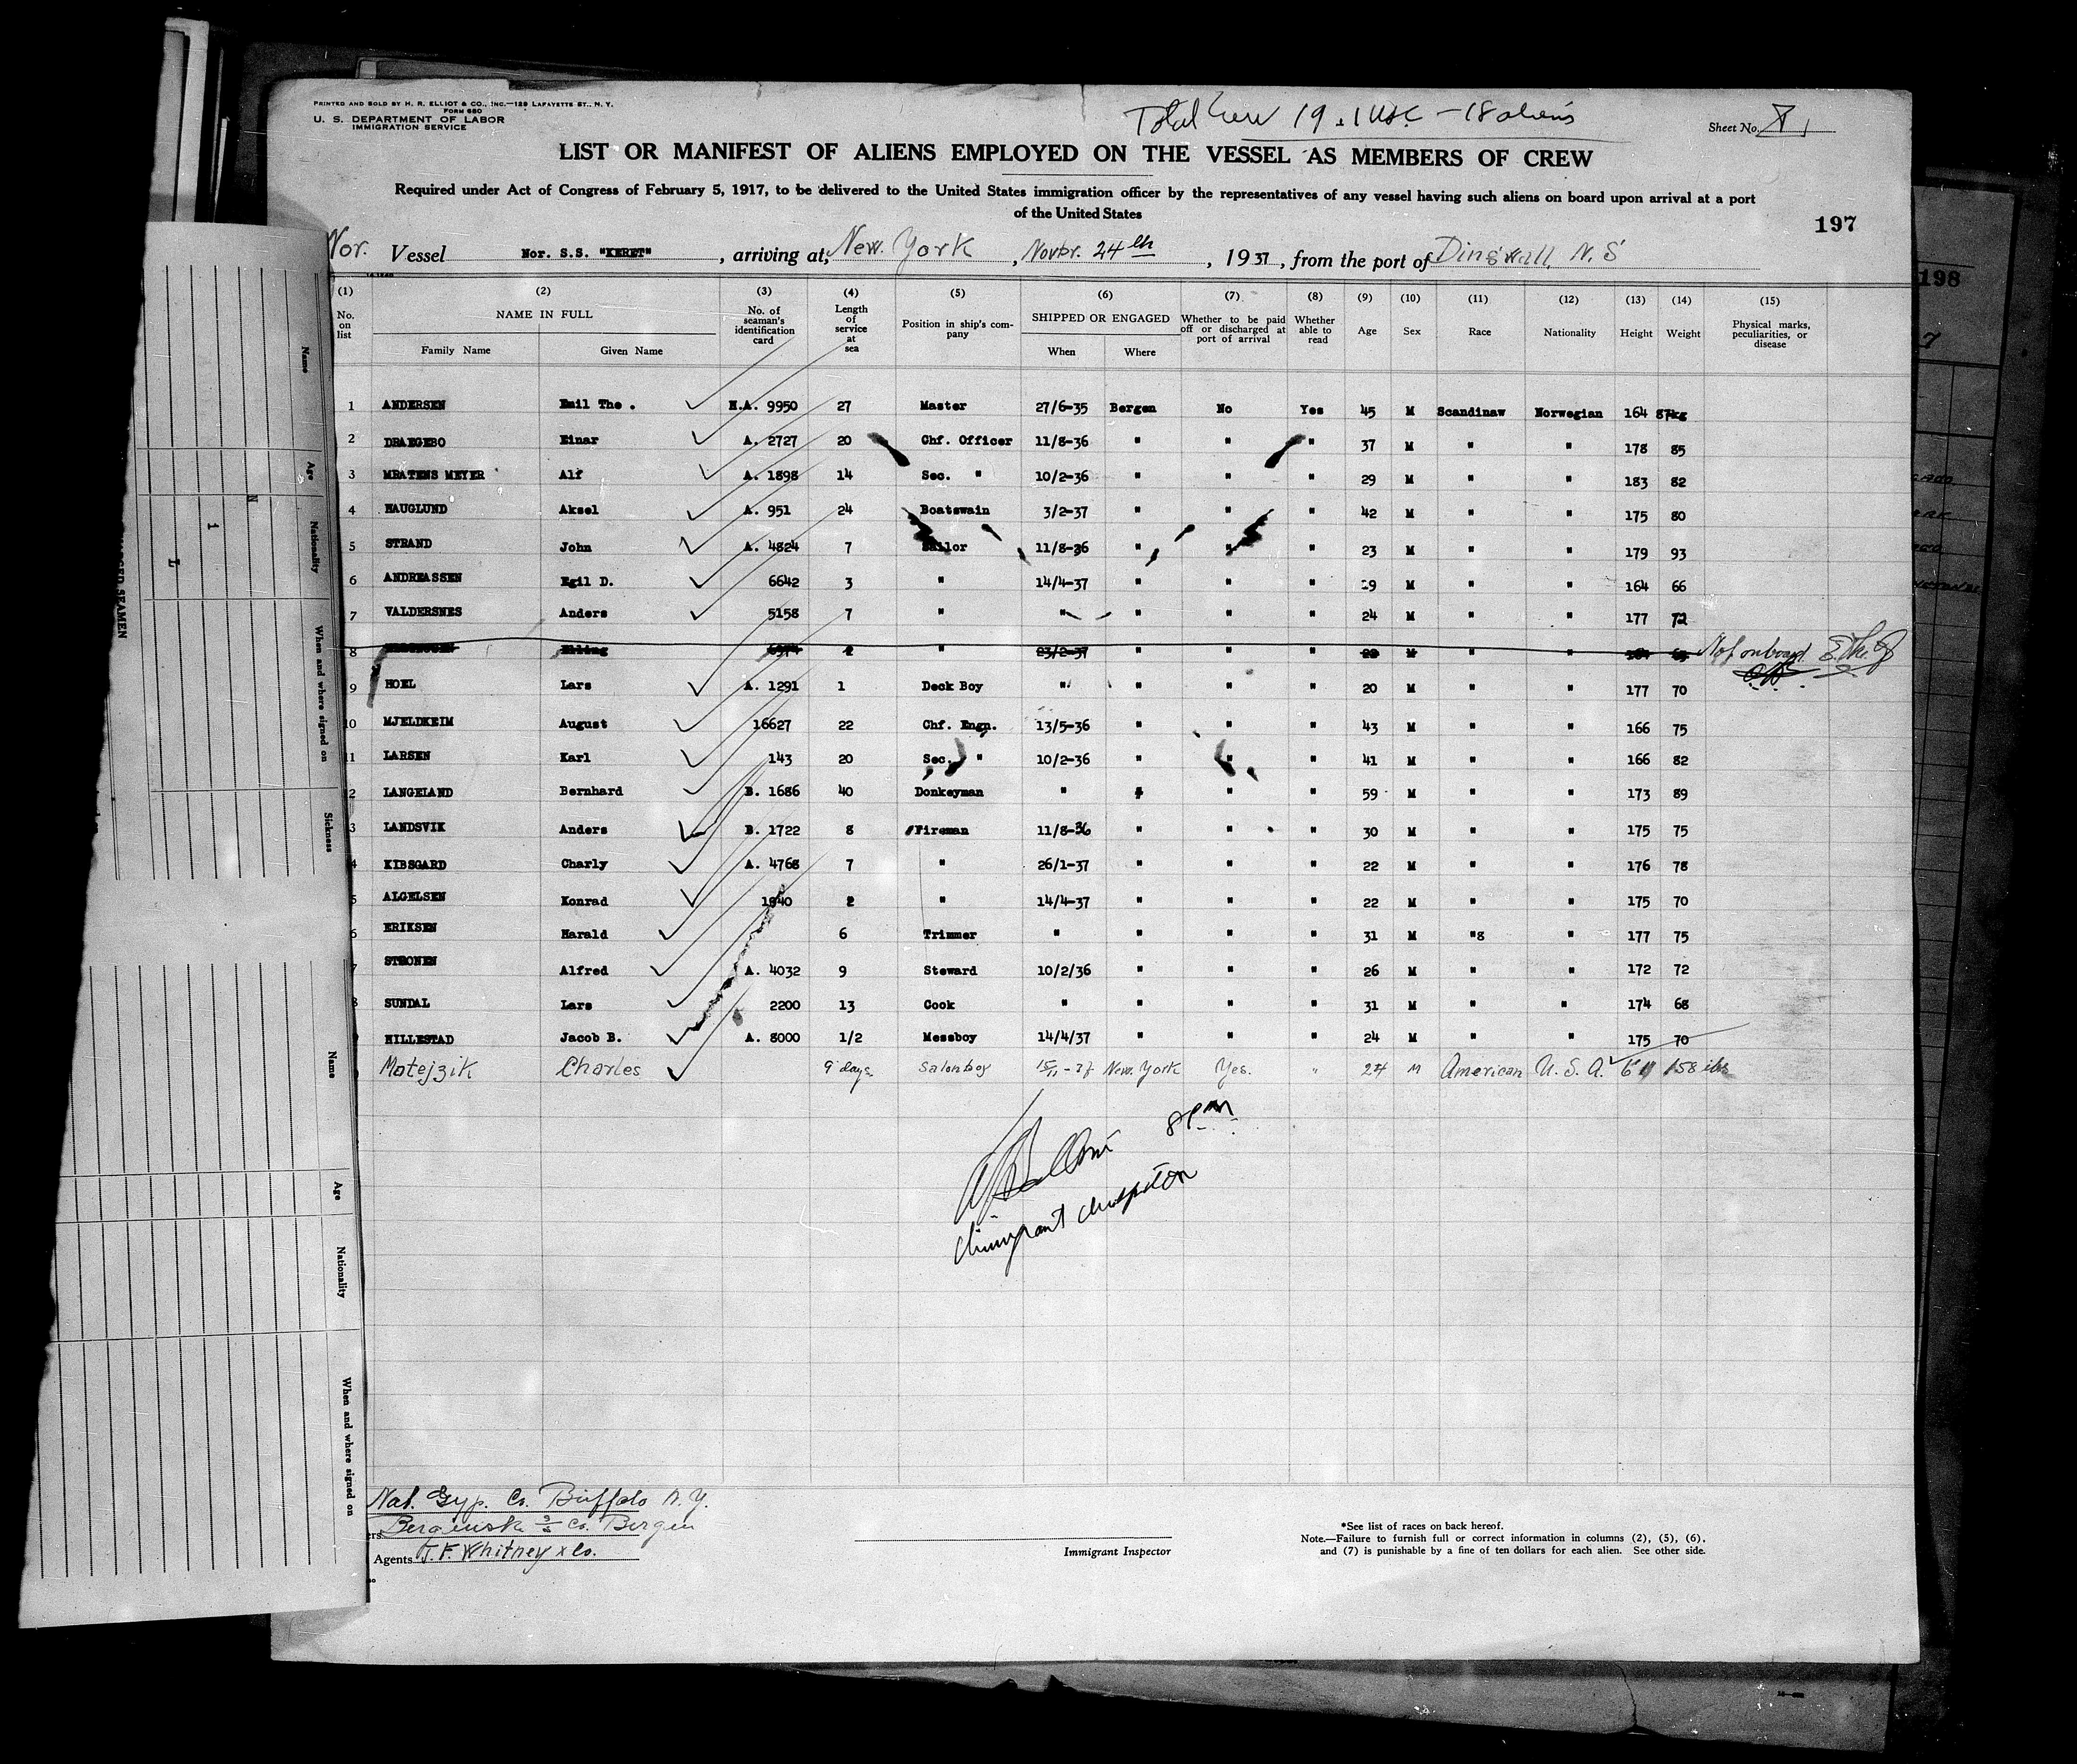 PRINTED AND SOLD BY H. R. ELLIOT & CO., INC.—129 LAFAYETTE ST., N. Y.
FORM 680
U. S. DEPARTMENT OF LABOR
IMMIGRATION SERVICE
Total Crew 19 . 1 USC — 18 aliens
Sheet No.
LIST OR MANIFEST OF ALIENS EMPLOYED ON THE VESSEL AS MEMBERS OF CREW
Required under Act of Congress of February 5, 1917, to be delivered to the United States immigration officer by the representatives of any vessel having such aliens on board upon arrival at a port
of the United States
197
Nor. Vessel Nor. S.S. "KERET", arriving at, New York, Novbr. 24th, 1937, from the port of Dingwall, N.S
(1) No. on list (2) NAME IN FULL Family Name Given Name (3) No. of seaman's identification card (4) Length of service at sea (5) Position in ship's company (6) SHIPPED OR ENGAGED When Where (7) Whether to be paid off or discharged at port of arrival (8) Whether able to read (9) Age (10) Sex (11) Race (12) Nationality (13) Height (14) Weight (15) Physical marks, peculiarities, or disease
1 ANDERSEN Emil The . N.A. 9950 27 Master 27/6-35 Bergen No Yes 45 M Scandinaw Norwegian 164 87kg
2 DRAEGEBO Einar A. 2727 20 Chf. Officer 11/8-36 " " " 37 M " " 178 85
3 MRATENS MEYER Alf A. 1898 14 Sec. " 10/2-36 " " " 29 M " " 183 82
4 HAUGLUND Aksel A. 951 24 Boatswain 3/2-37 " " " 42 M " " 175 80
5 STRAND John A. 4824 7 Sailor 11/8-36 " " " 23 M " " 179 93
6 ANDREASSEN Egil D. 6642 3 " 14/4-37 " " " 19 M " " 164 66
7 VALDERSNES Anders 5158 7 " " " " " 24 M " " 177 72
8 Elling 2 23/2-37 M " " Not onboard
9 HOEL Lars A. 1291 1 Deck Boy " " " " 20 M " " 177 70
10 MJELDHEIM August 16627 22 Chf. Engn. 13/5-36 " " " 43 M " " 166 75
11 LARSEN Karl 143 20 Sec. " 10/2-36 " " " 41 M " " 166 82
2 LANGELAND Bernhard B. 1686 40 Donkeyman " " " " 59 M " " 173 89
3 LANDSVIK Anders B. 1722 8 Fireman 11/8-36 " " " 30 M " " 175 75
4 KIBSGARD Charly A. 4768 7 " 26/1-37 " " " 22 M " " 176 78
5 ALGELSEN Konrad 1840 2 " 14/4-37 " " " 22 M " " 175 70
6 ERIKSEN Harald 6 Trimmer " " " " 31 M "8 " 177 75
7 STRONEN Alfred A. 4032 9 Steward 10/2/36 " " " 26 M " " 172 72
8 SUNDAL Lars 2200 13 Cook " " " " 31 M " " 174 68
9 HILLESTAD Jacob B. A. 8000 1/2 Messboy 14/4/37 " " " 24 M " " 175 70
Matejzik Charles 9 days. Salonboy 15/11-37 New. York Yes. " 24 M American U.S.A. 6' 158 lbs
8 PM
Immigrant Inspector
Nat. Gyp. Co. Buffalo N.Y.
ers Bergenske S/S Co. Bergen
Agents J. F. Whitney & Co.
Immigrant Inspector
*See list of races on back hereof.
Note.—Failure to furnish full or correct information in columns (2), (5), (6),
and (7) is punishable by a fine of ten dollars for each alien. See other side.
Name
Age
Nationality
When and where signed on
Sickness
Name
Age
Nationality
When and where signed on
SEAMEN
198
7